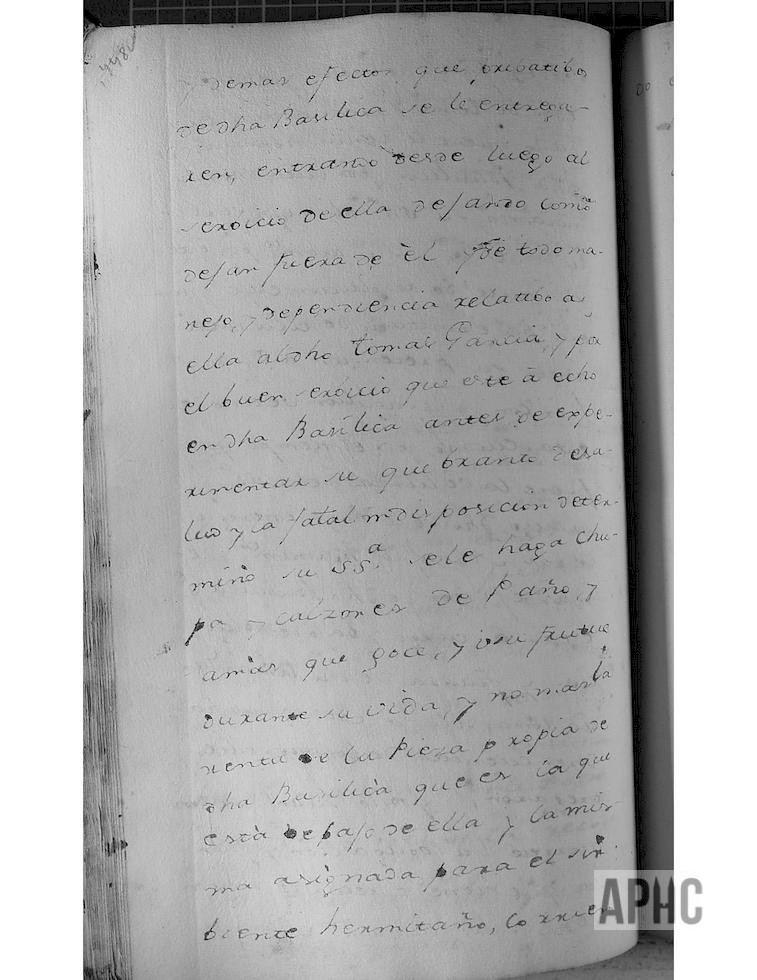 y demas efectos que pribatibos
de dha Basilica se le entrega-
ren, entrando desde luego al
serbicio de ella dejando como
dejan fuera de èl y de todo ma-
nejo, y dependiencia relatibo a
ella al dho tomas Garcia, y por
el buen serbicio que este à echo
en dha Basilica antes de expe-
rimentar su quebranto de sa-
lud y la fatal indisposicion deter-
minò su SSª. se le haga Chu-
pa y calzones de Paño, y
amàs que goce, y usufrutue
durante su vida, y no mas la
renta de la Pieza propia de
dha Basilica que es la que
està debajo de ella y la mis-
ma asignada para el sir-
biente hermitaño, corrien
APHC